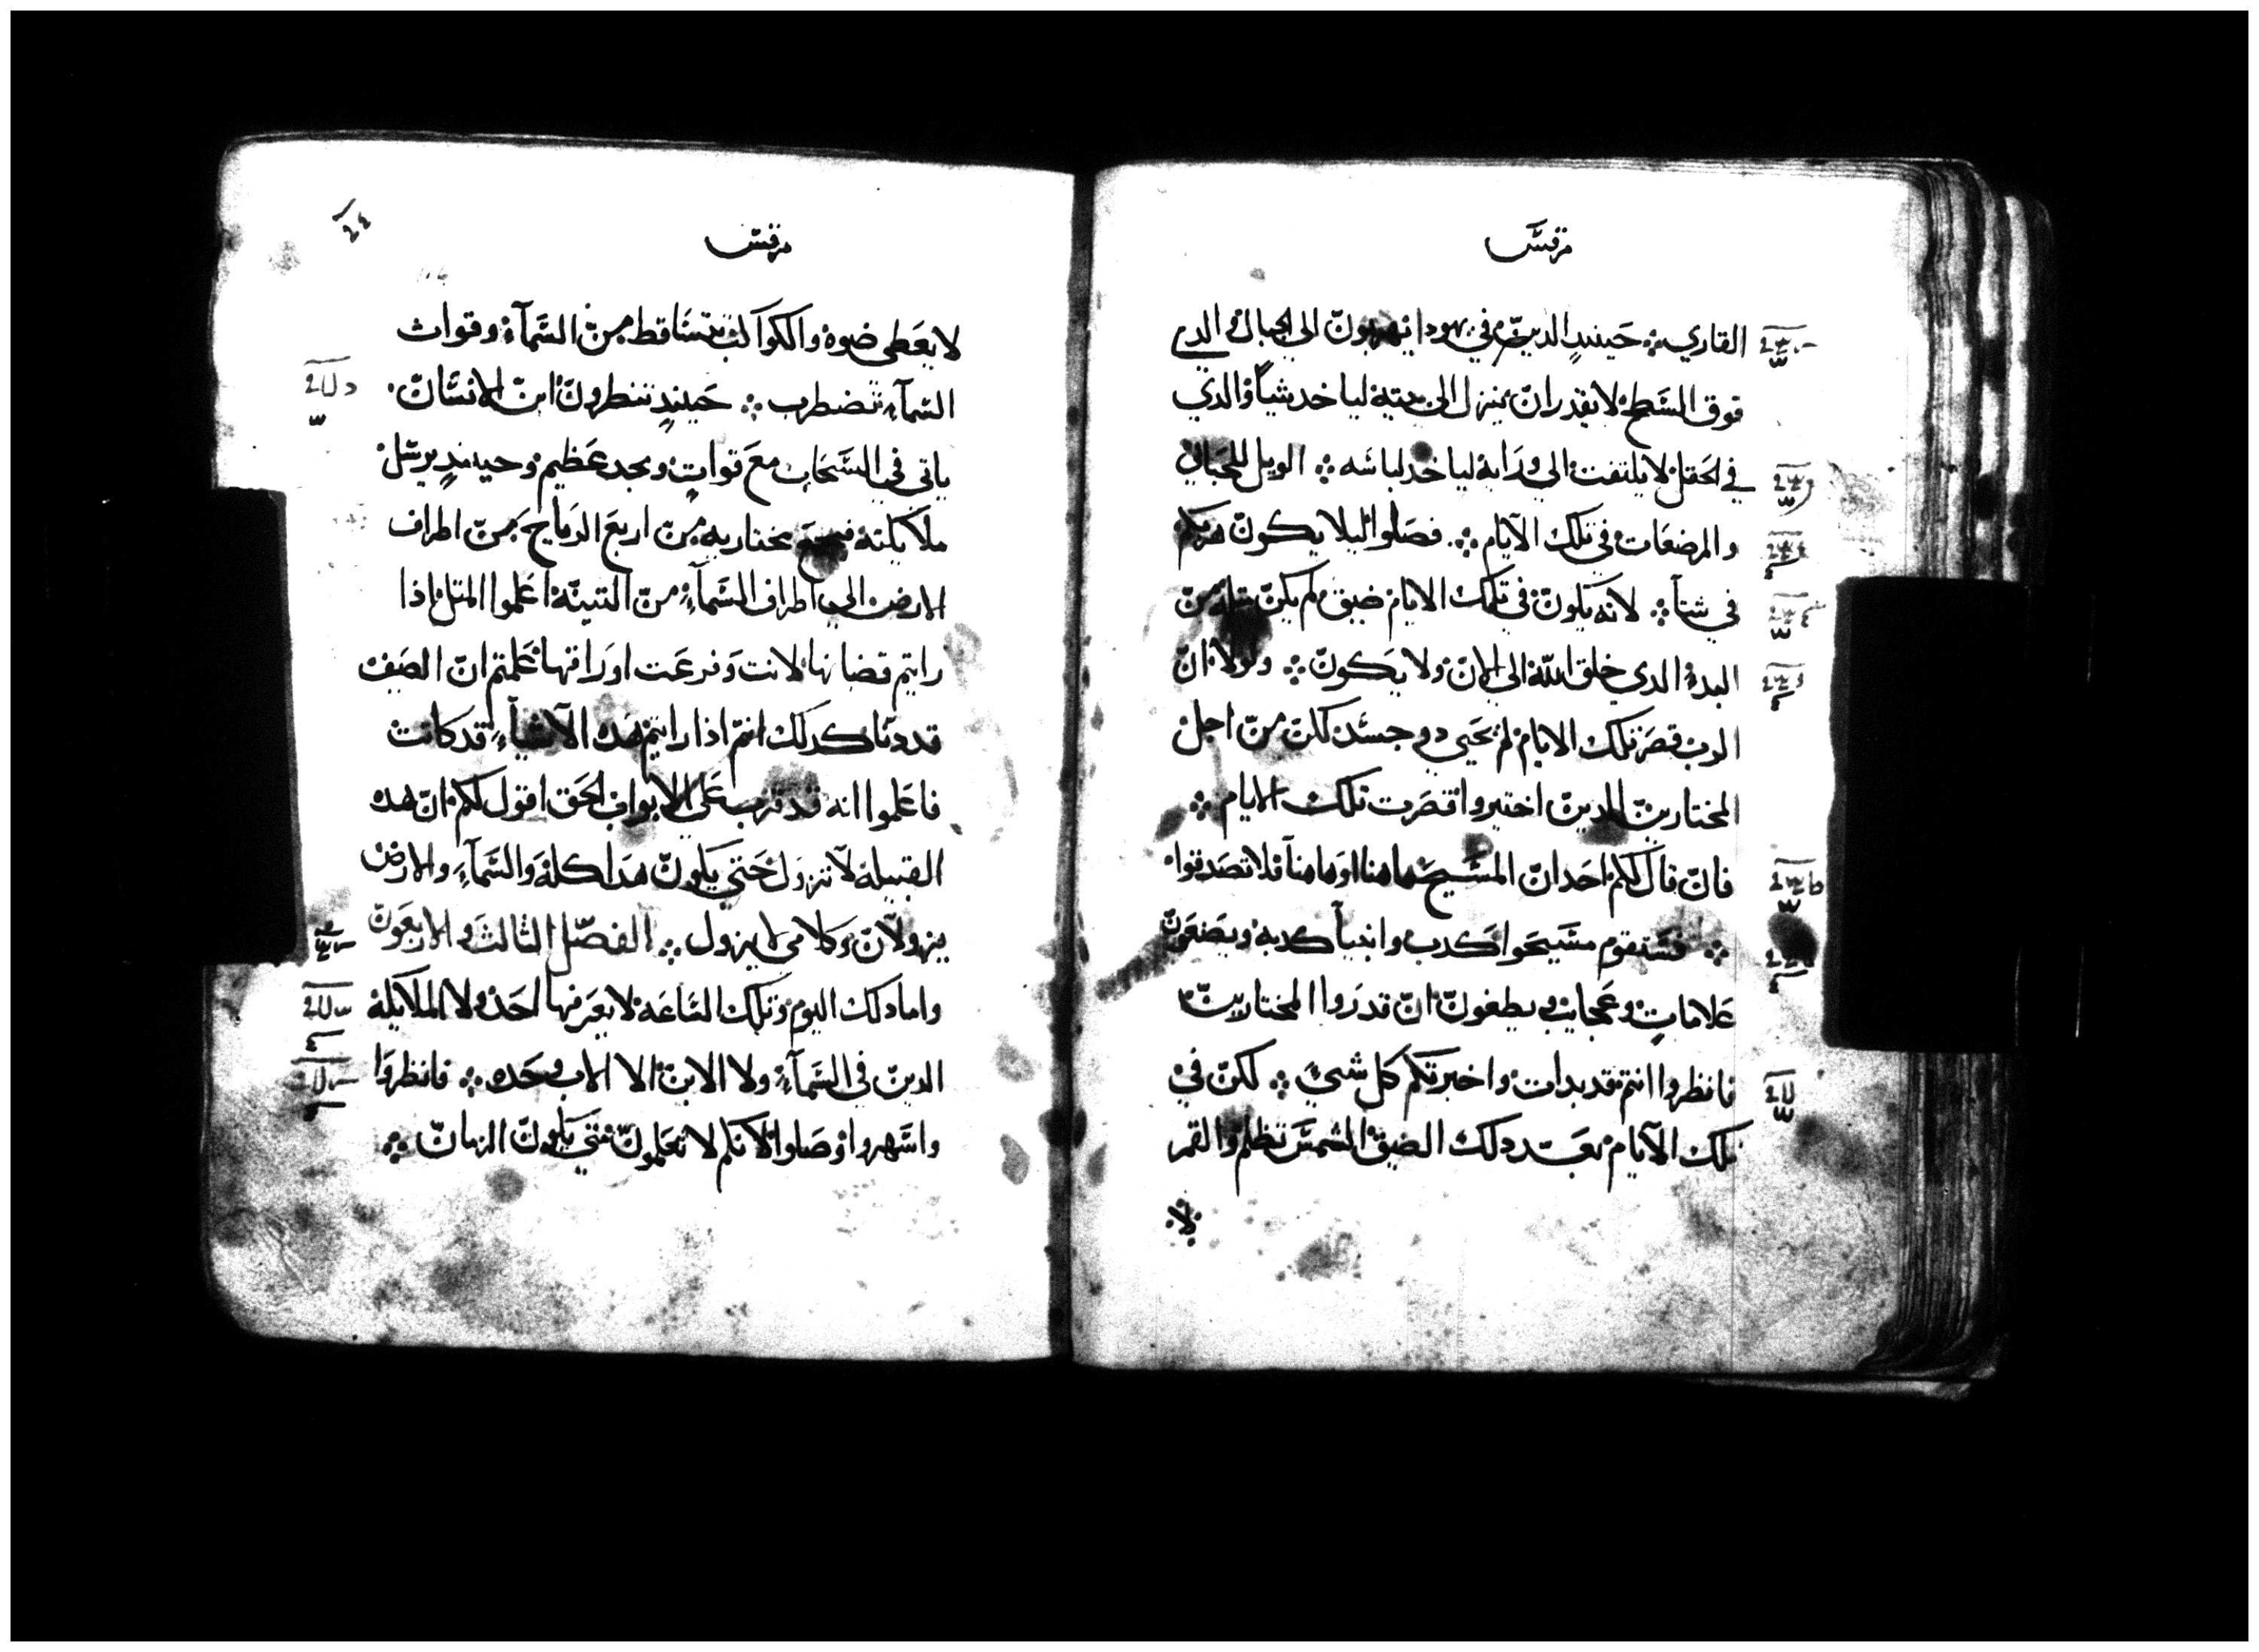 مرقس
القاري ܀ حينيدٍ الدين في يهودا يهربون الي الجبال والدي
فوق السطح لا يقدر ان ينزل الي بيته لياخد شياً والدي
في الحقل لا يلتفت الي ورايه لياخد لباسه ܀ الويل للحبالي
والمرضعات في تلك الايام ܀ فصلوا ليلا يكون هربكم
في شتآ ܀ لانه يكون في تلك الايام ضيق لم يكن مثله من
البدء الدي خلق الله الي الان ولا يكون ܀ ولولا ان
الرب قصر تلك الايام لم يحيي دو جسد لكن من اجل
المختارين الدين اختيروا قصرت تلك الايام ܀
فان قال لكم احد ان المسيح هاهنا او هاهنا فلا تصدقوا
܀ فستقوم مسيحوا كدب وانبيآ كدبه ويصنعون
علاماتٍ وعجايب ويطغون ان قدروا المختارين
فانظروا انتم قد بدات واخبرتكم كل شيء ܀ لكن في
تلك الايام بعد دلك الضيق الشمس تظلم والقمر
لا
مرقس
لا يعطي ضوه والكواكب تتساقط من السمآء وقوات
السمآء تضطرب ܀ حينيدٍ تنظرون ابن الانسان
ياتي في السحاب مع قواتٍ ومجد عظيم وحينيدٍ يرسل
ملايكته فيجمع مختاريه من اربع الرياح من اطراف
الارض الي اطراف السمآء من التينة اعلموا المتل ادا
رايتم قضبانها لانت وفرعت اوراقها علمتم ان الصيف
قد دنا كدلك انتم اذا رايتم هده الاشيآء قد كانت
فاعلموا انه قد قرب علي الابواب الحق اقول لكم ان هده
القبيلة لا تزول حتي يكون هدا كله والسمآء والارض
يزولان وكلامي لا يزول ܀ الفصل الثالث والاربعون
واما دلك اليوم وتلك الساعه لا يعرفها احد ولا الملايكة
الدين في السمآء ولا الابن الا الاب وحده ܀ فانظروا
واسهروا وصلوا لانكم لا تعلمون متي يكون الزمان ܀